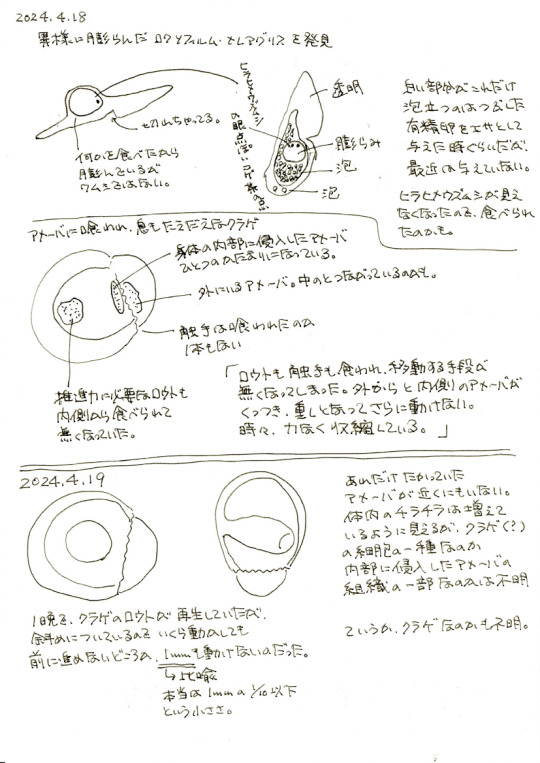 2024.4.18
異様に膨らんだロクソフィルム・メレアグリスを発見
切れちゃってる。
何かを食べたから
膨んでいるが
ワムシではない。
ヒラヒメウズムシ
の眼点ぽい
透明
膨らみ
泡
泡
白い部分がこれだけ
泡立つのはつぶした
有精卵をエサとして
与えた時ぐらいだが、
最近は与えていない。
ヒラヒメウズムシが見え
なくなったので、食べられ
たのかも。
アメーバに喰われ、息もたえだえなクラゲ
身体の内部に侵入したアメーバ
ひとつのかたまりになっている。
外にいるアメーバ。中のとつながっているのかも。
触手は喰われたのか
1本もない
推進力に必要なロウトも
内側から食べられて
無くなっていた。
「ロウトも触手も食われ、移動する手段が
無くなってしまった。外からと内側のアメーバが
くっつき、重しとなってさらに動けない。
時々、力なく収縮している。」
2024.4.19
あれだけたかっていた
アメーバが近くにもいない。
体内のチラチラは増えて
いるように見えるが、クラゲ(?)
の細胞の一種なのか
内部に侵入したアメーバの
組織の一部なのかは不明
というか、クラゲなのかも不明。
1日で、クラゲのロウトが再生していたが、
斜めについているのでいくら動かしても
前に進めないどころか、1mmも動けないのだった。
↳比喩
本当は1mmの1/10以下
という小ささ。